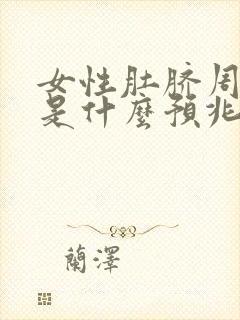 女性肚脐周
是什麼預兆
蘭澤